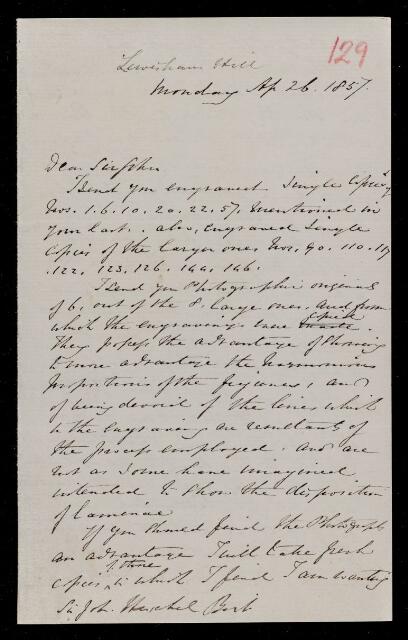 129
Lewisham Hill
Monday Ap 26. 1857.
Dear Sir John
I send you engraved single copies of
Nos. 1. 6. 10. 20. 22. 57. mentioned in
your last. also, engraved single
copies of the larger ones Nos, 90. 110. 119
. 122, 123, 126. 144, 146.
I send you Photographic originals
of 6, out of the 8. large ones, and from
which the engravings were copied made.
They possess the advantage of showing
to more advantage the harmonious
proportions of the figures, and
of being devoid of the lines which
in the engraving are resultants of
the process employed. and are
not as some have imagined
intended to show the disposition
of laminae
If you should find the Photographs
an advantage I will take fresh
copies of those in which I find I am wanting
Sir John Herschel Bart